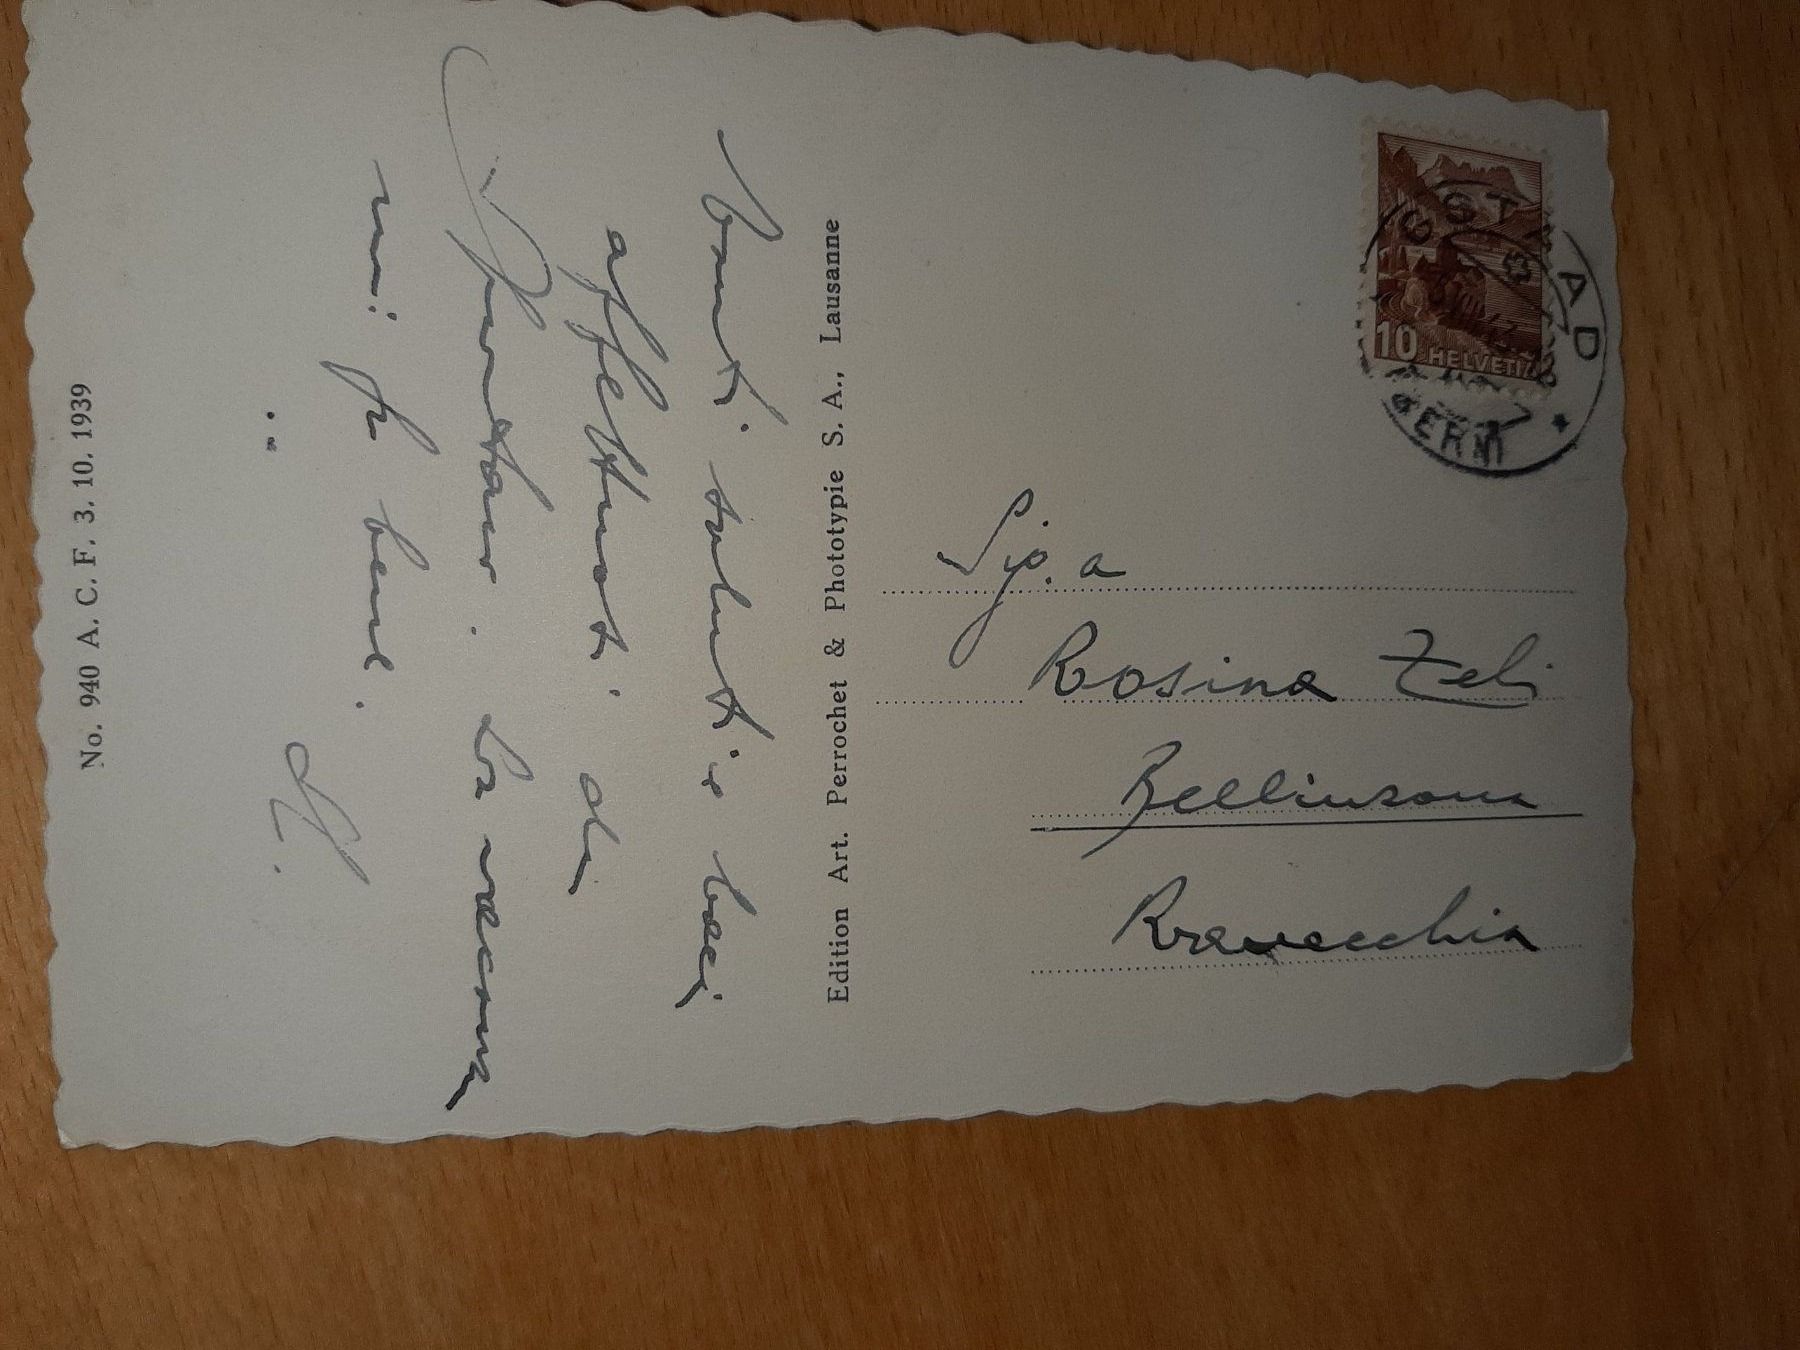 No. 940 A. C. F. 3. 10. 1939
Edition Art. Perrochet & Phototypie S. A., Lausanne
Tanti saluti e baci
affettuosi da
la vacanza
mi fa bene.
Sig.a
Rosina Zeli
Bellinzona
Ravecchia
10 HELVETIA
GSTAAD
(BERN)